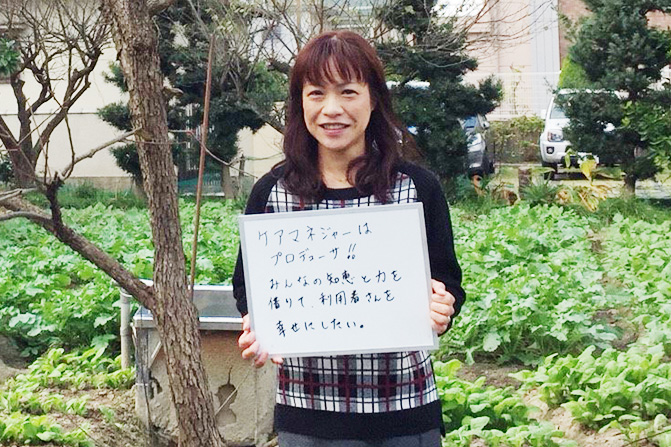 ケアマネジャーは
プロデューサ!!
みんなの知恵と力を
借りて、利用者さんを
幸せにしたい。